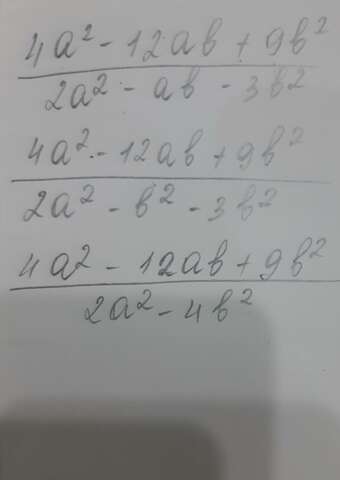 4a² - 12ab + 9b²
2a² - ab - 3b²
4a² - 12ab + 9b²
2a² - b² - 3b²
4a² - 12ab + 9b²
2a² - 4b²